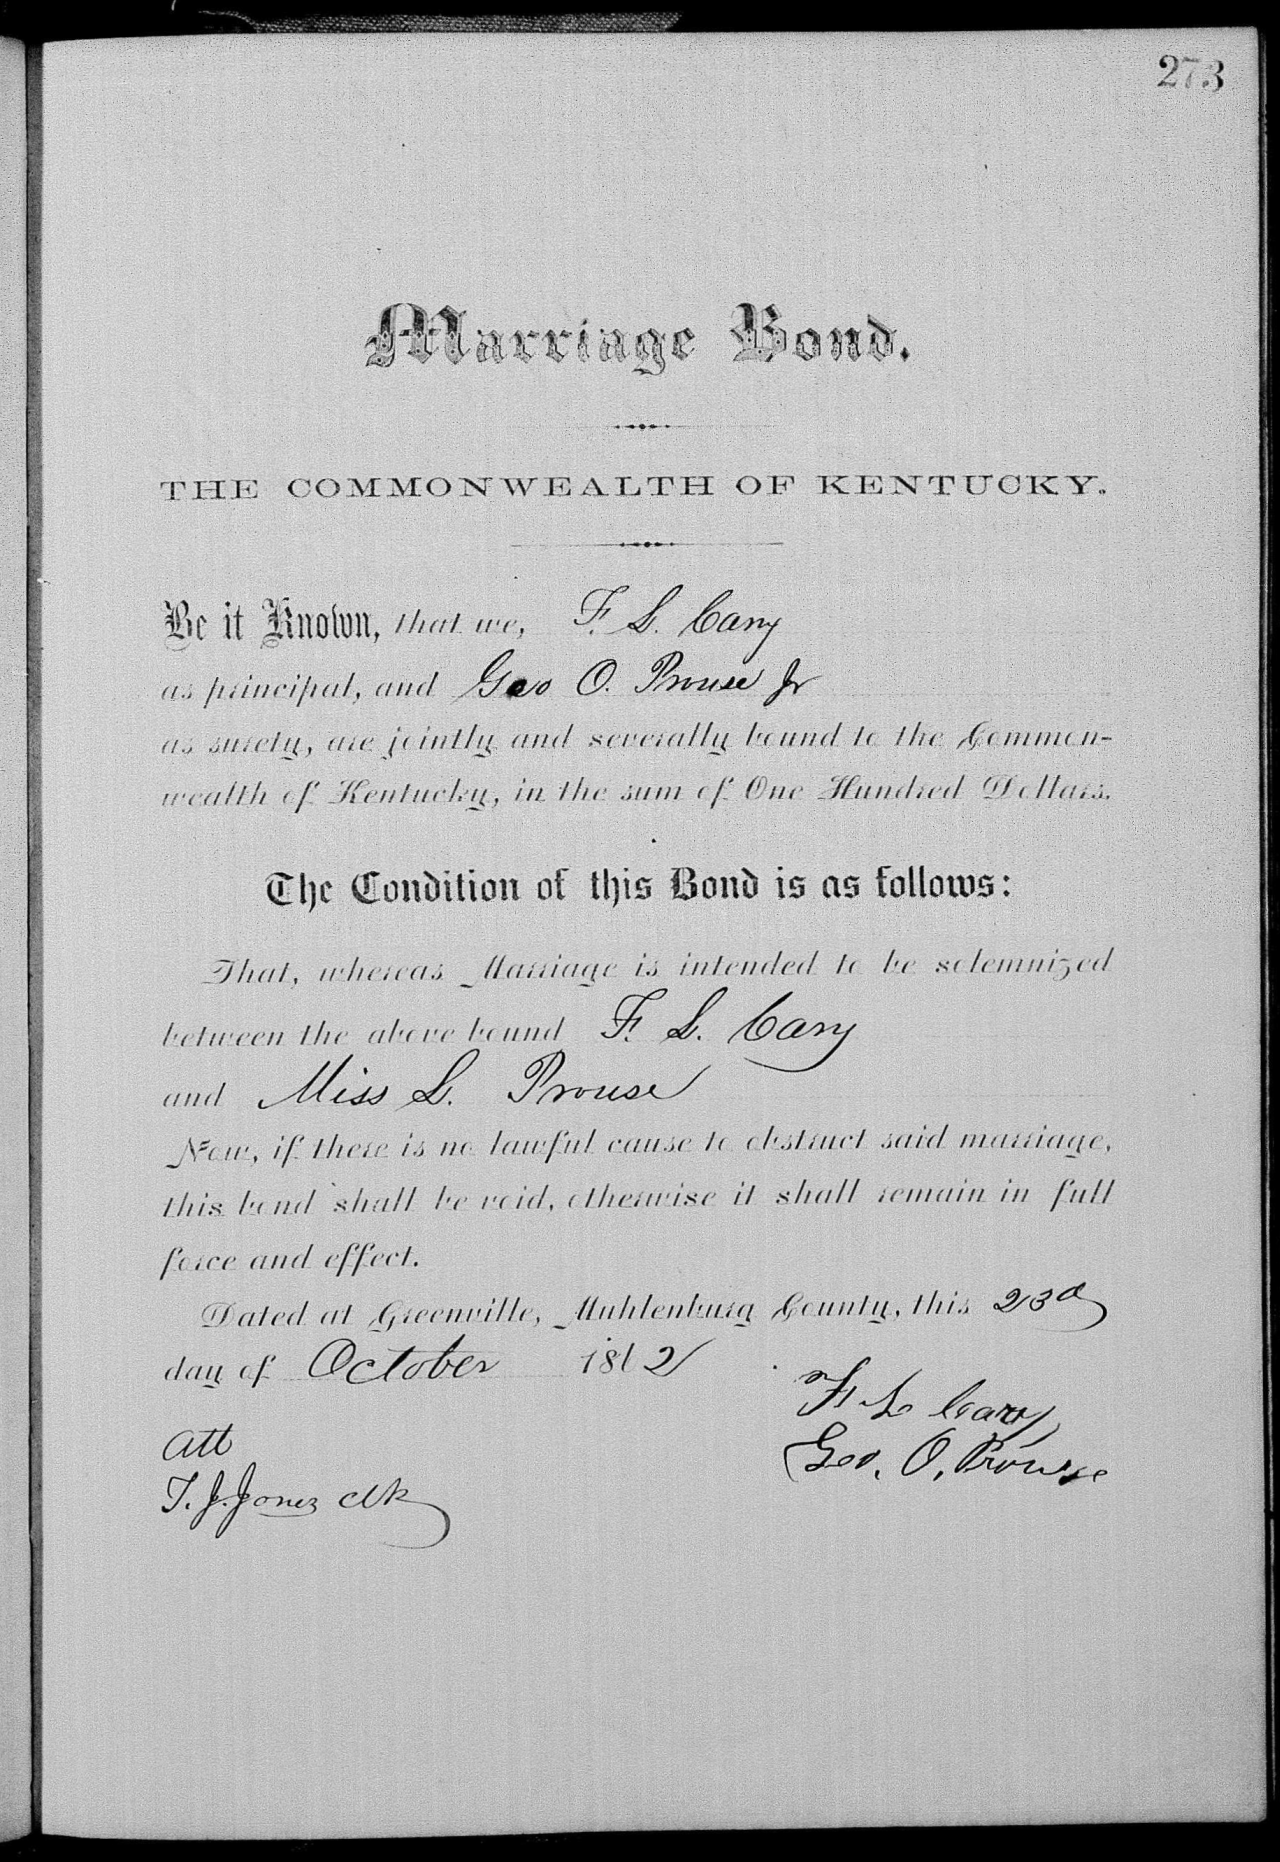 273
Marriage Bond.
THE COMMONWEALTH OF KENTUCKY.
Be it Known, that we, F. L. Cary
as principal, and Geo O. Prouse Jr
as surety, are jointly and severally bound to the Common-
wealth of Kentucky, in the sum of One Hundred Dollars.
The Condition of this Bond is as follows:
That, whereas Marriage is intended to be solemnized
between the above bound F. L. Cary
and Miss L. Prouse
Now, if there is no lawful cause to obstruct said marriage,
this bond shall be void, otherwise it shall remain in full
force and effect.
Dated at Greenville, Muhlenburg County, this 23d
day of October 1882
F L Cary
Geo. O. Prowse
Att
T. J. Jones clk